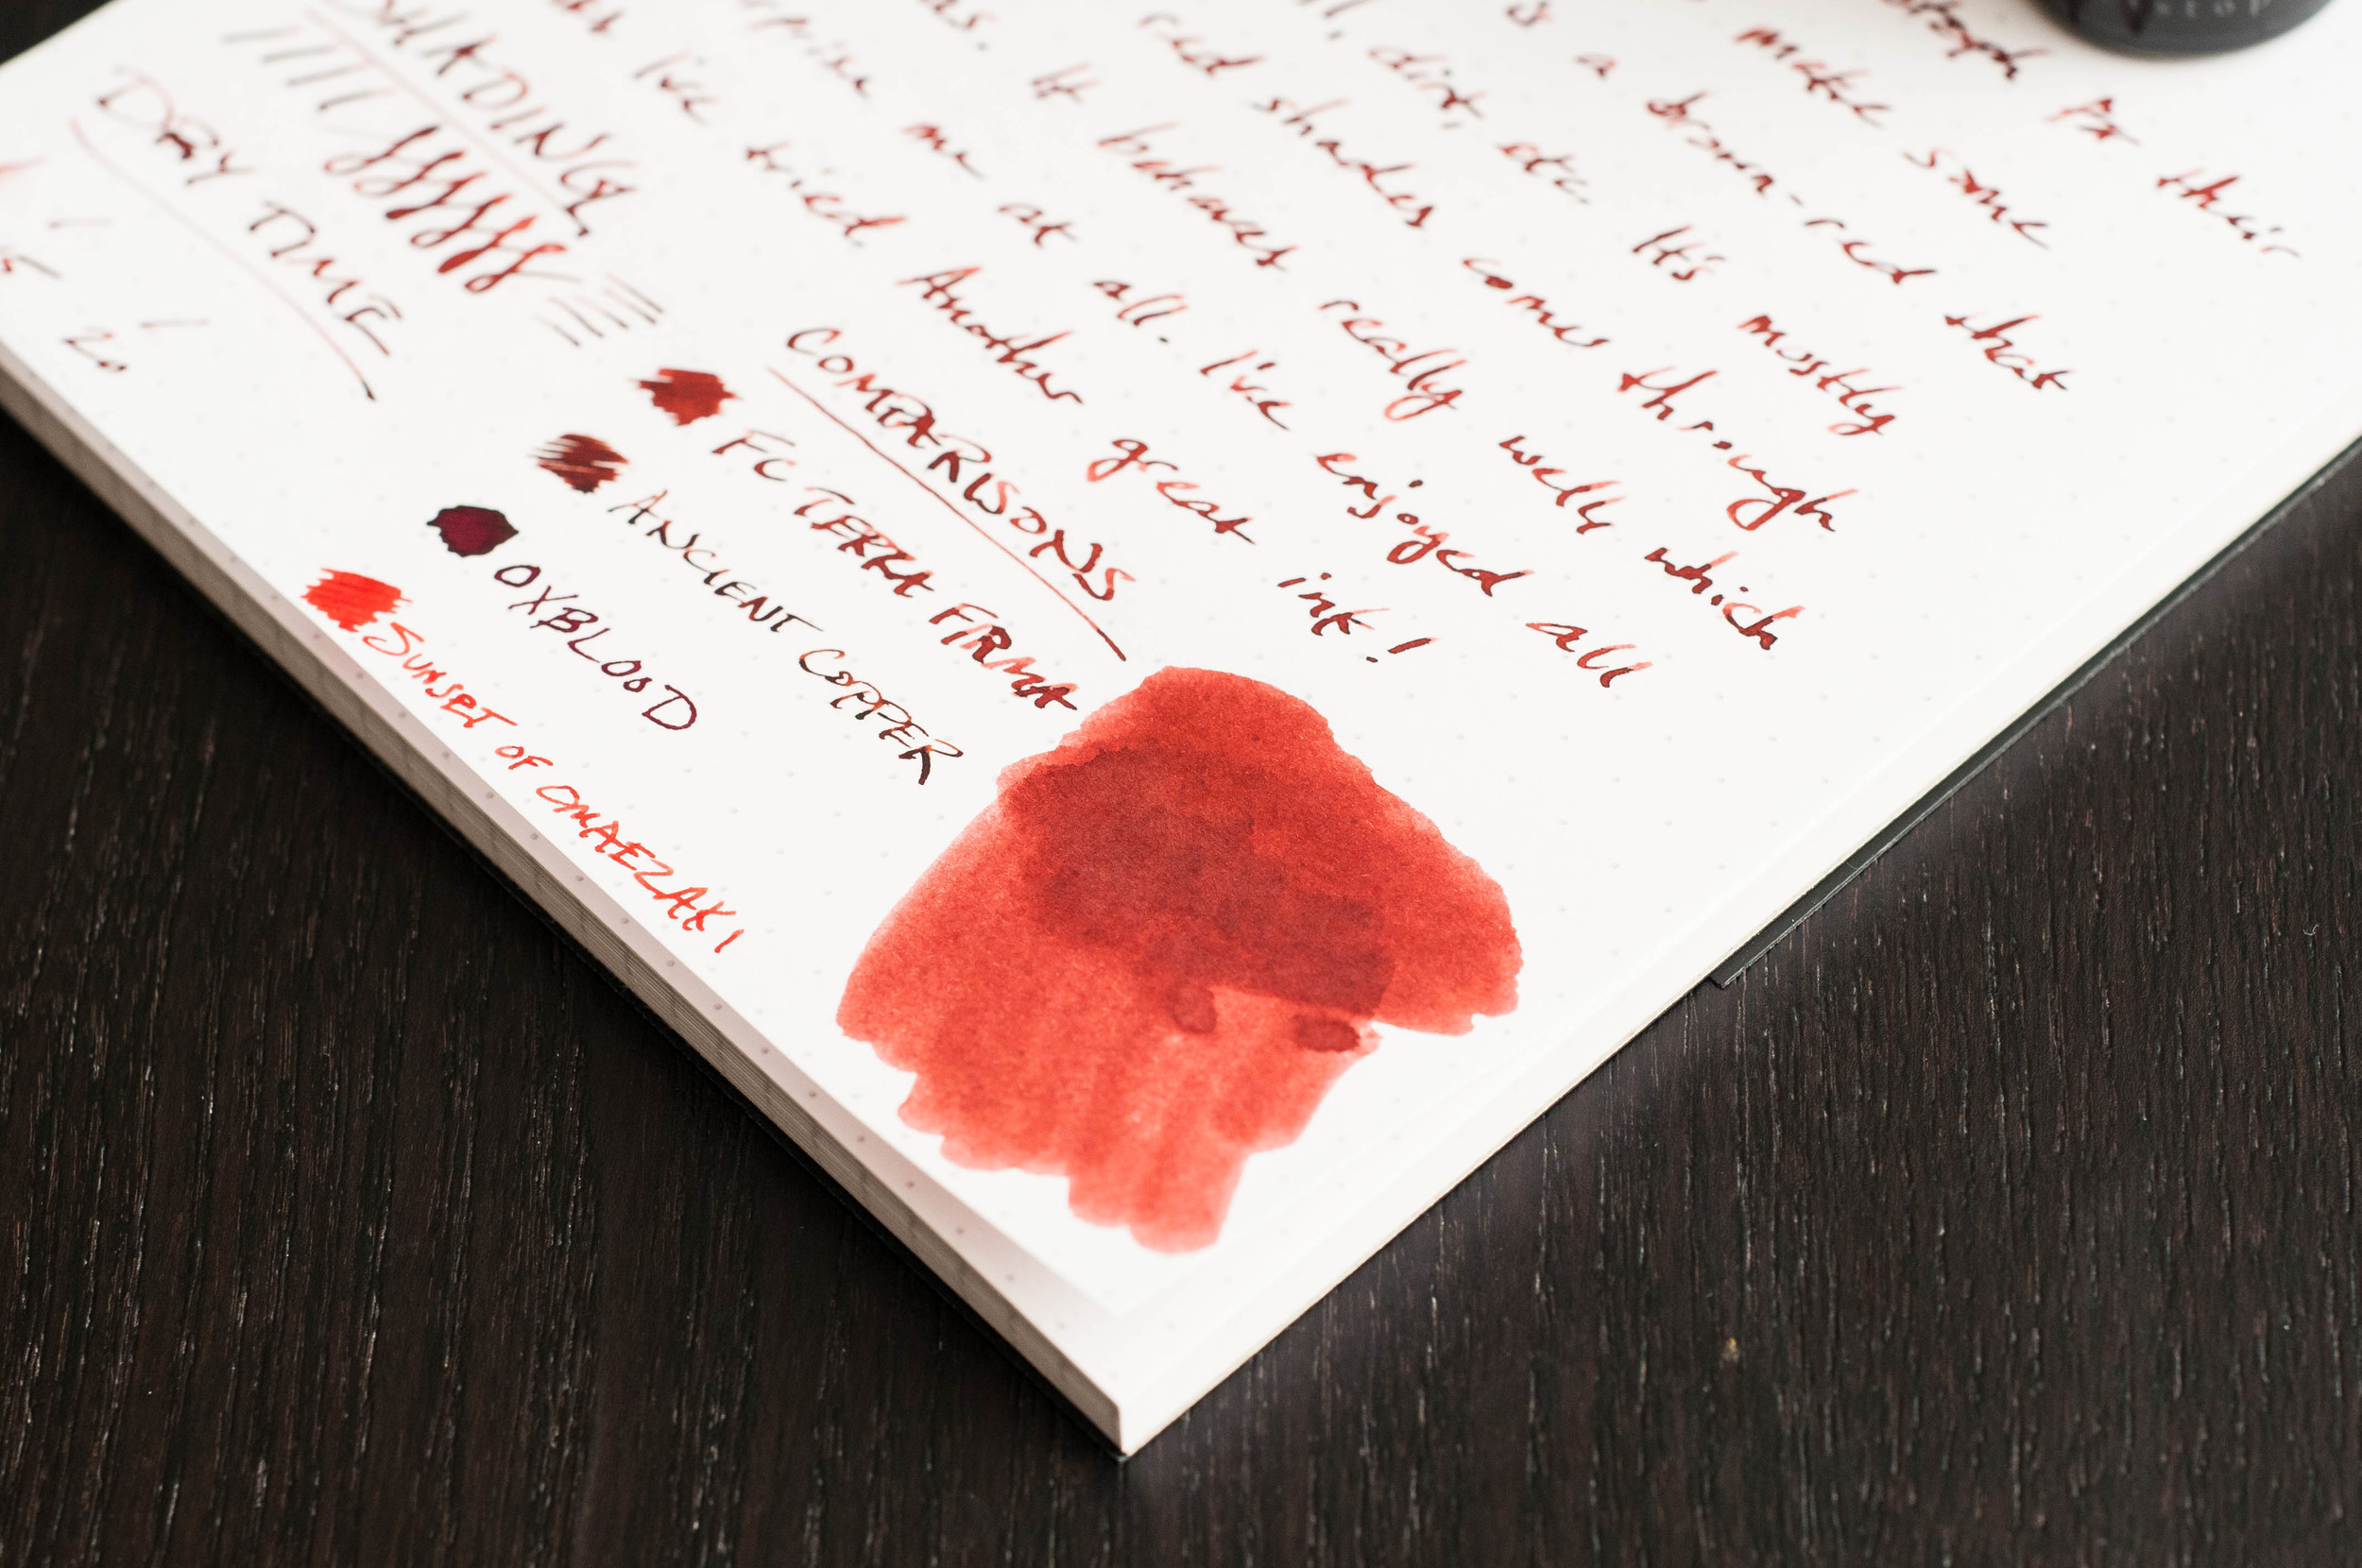 for their
make some
is a brown-red that
dirt, etc. It's mostly
red shades comes through
It behaves really well, which
me at all. I've enjoyed all
I've tried. Another great ink!
SHADING
DRY TIME
20
COMPARISONS
FC TERRA FIRMA
ANCIENT COPPER
OXBLOOD
SUNSET OF OMAEZAKI